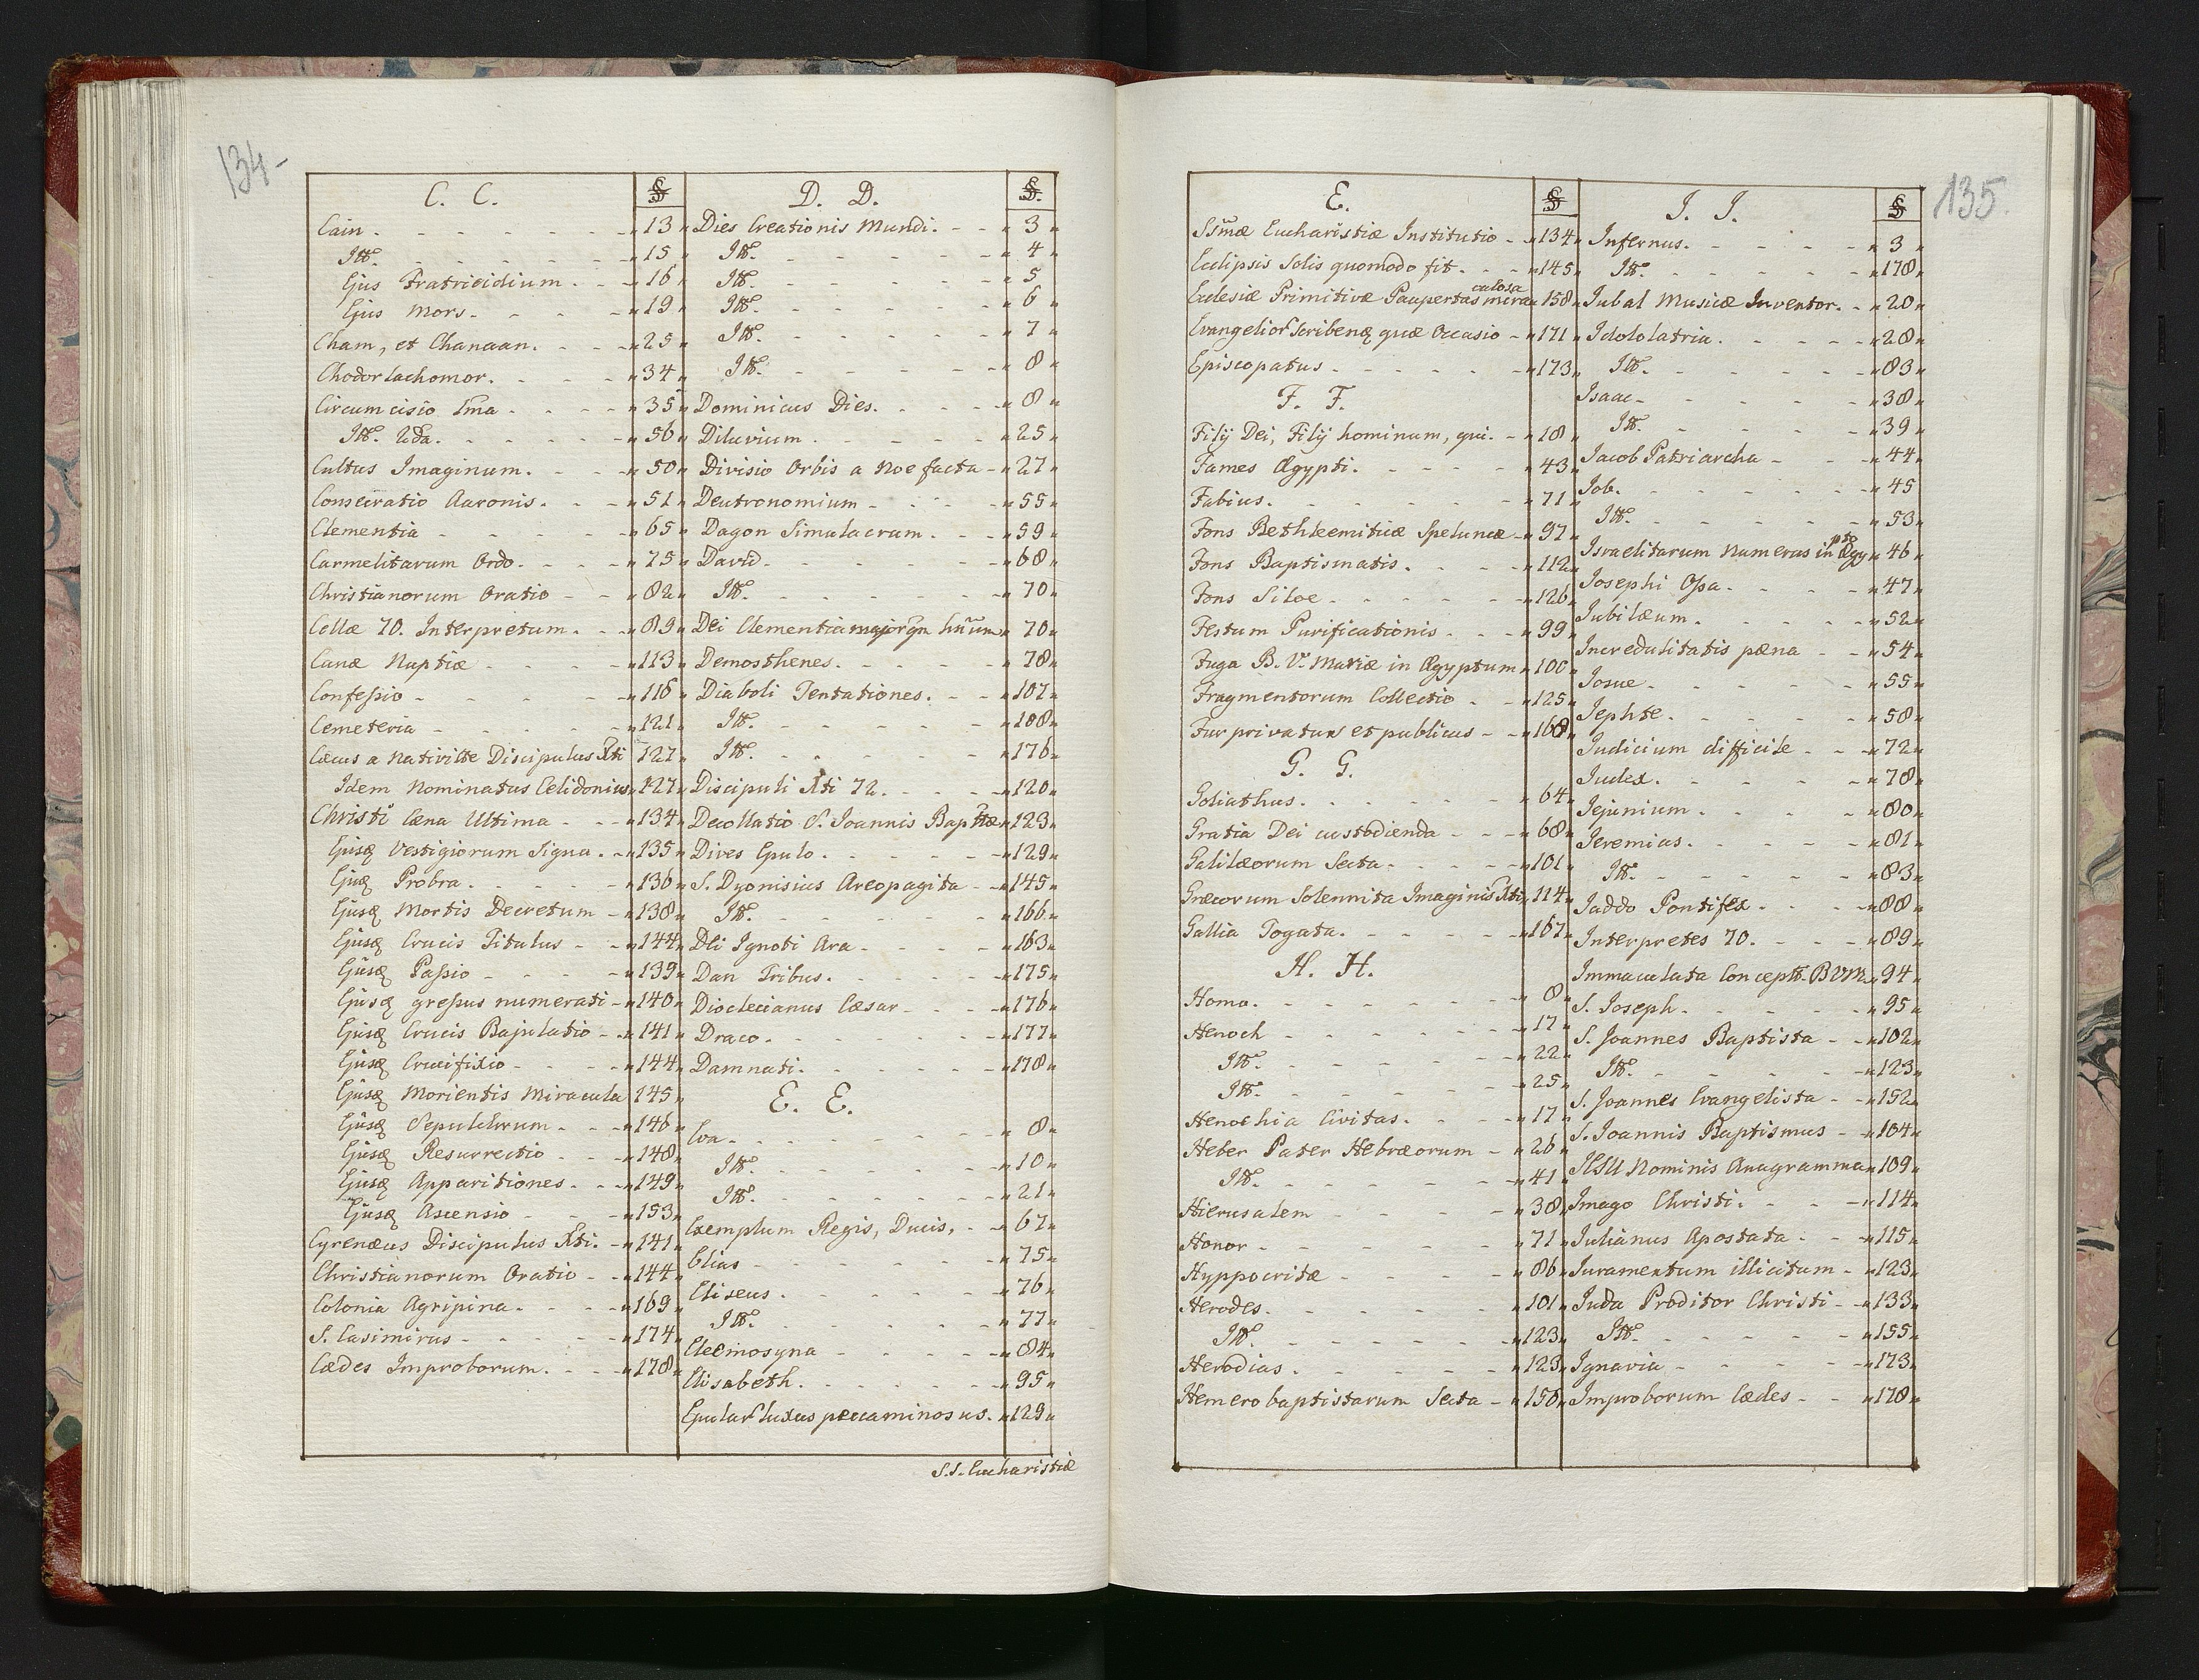 134-
C. C.
§
Cain. - - - - - - 13
Itt. - - - - - - 15
Ejus Fratricidium. - - 16
Ejus Mors. - - - - 19
Cham, et Chanaan. - - 25
Chodorlachomor. - - - 34
Circumcisio Ima - - - 35
Itt. 2da. - - - - - 56
Cultus Imaginum. - - - 50
Consecratio Aaronis. - - 51
Clementia - - - - - 65
Carmelitarum Ordo. - - - 75
Christianorum Oratio - - 82
Cellæ 70. Interpretum. - - 89
Canæ Nuptiæ - - - - 113
Confessio - - - - - 116
Cemeteria - - - - - 121
Cæcus a Nativitte Discipulus Xti 127
Idem Nominatus Celidonius 127
Christi Cæna Ultima - - - 134
Ejusq Vestigiorum Signa. - 135
Ejusq Probra. - - - - 136
Ejusq Mortis Decretum - 138
Ejusq Crucis Titulus - - 144
Ejusq Passio - - - - 139
Ejusq gressus numerati - 140
Ejusq Crucis Bajulatio - - 141
Ejusq Crucifixio - - - - 144
Ejusq Morientis Miracula 145
Ejusq Sepulchrum - - - 146
Ejusq Resurrectio - - - 148
Ejusq Apparitiones. - - 149
Ejusq Ascensio - - - 153
Cyrenæus Discipulus Xti. - 141
Christianorum Oratio - - 144
Colonia Agripina. - - - 169
S. Casimirus - - - - - 174
Cædes Improborum. - - - 178
D. D.
§.
Dies Creationis Mundi. - - 3
Itt. - - - - - - 4
Itt. - - - - - - 5
Itt. - - - - - - 6
Itt. - - - - - - 7
Itt. - - - - - - 8
Dominicus Dies. - - - - 8
Diluvium. - - - - - 25
Divisio Orbis a Noe facta - 27
Deutronomium - - - - 55
Dagon Simulacrum. - - - 59
David. - - - - - - 68
Itt. - - - - - - 70
Dei Clementia major qm hnum 70
Demosthenes. - - - - 78
Diaboli Tentationes. - - 107
Itt. - - - - - - 108
Itt. - - - - - - 176
Discipuli Xti 72. - - - - 120
Decollatio S. Joannis Baptæ 123
Dives Epulo. - - - - - 129
S. Dyonisius Areopagita - - 145
Itt. - - - - - - 166
Dei Ignoti Ara - - - - 163
Dan Tribus. - - - - - 175
Dioclecianus Cæsar - - - 176
Draco. - - - - - - 177
Damnati. - - - - - 178
E. E.
Eva. - - - - - - 8
Itt. - - - - - - 10
Itt. - - - - - - 21
Exemplum Regis, Ducis, - - 67
Elias - - - - - - 75
Eliseus. - - - - - 76
Itt. - - - - - - 77
Eleemosyna - - - - - 84
Elisabeth. - - - - - 95
Epular luxus peccaminosus. 129
S.S. Eucharistiæ
135.
E.
§
Ssmæ Eucharistiæ Institutio - 134
Ecclipsis Solis quomodo fit. - - 145
culosa
Ecclesiæ Primitivæ Paupertas mira 158
Evangelior scribenq quæ Occasio - 171
Episcopatus - - - - - 173
F. F.
Filij Dei, Filij hominum, qui. - 18
Fames Ægypti. - - - - 43
Fabius. - - - - - - 71
Fons Bethleemiticæ Speluncæ - 97
Fons Baptismatis. - - - 112
Fons Siloe - - - - - 126
Festum Purificationis. - - 99
Fuga B. V. Mariæ in Ægyptum 100
Fragmentorum Collectio - - 125
Fur privatus et publicus - - 168
G. G.
Goliathus. - - - - - 64
Gratia Dei custodienda - - - 68
Galilæorum Secta. - - - - 101
Græcorum Solennita Imaginis Xti 114
Gallia Togata. - - - - - 167
H. H.
Homo. - - - - - - 8
Henoch - - - - - - 17
Itt. - - - - - - 22
Itt. - - - - - - 25
Henochia Civitas. - - - 17
Heber Pater Hebræorum - 26
Itt. - - - - - - 41
Hierusalem - - - - - 38
Honor - - - - - - 71
Hyppocritæ - - - - - 86
Herodes. - - - - - - 101
Itt. - - - - - - 123
Herodias. - - - - - 123
Hemerobaptistarum Secta - 150
J. J.
§
Infernus. - - - - - 3
Itt. - - - - - - 178
Jubal Musicæ Inventor. - - 20
Idololatria. - - - - - 28
Itt. - - - - - - 83
Isaac - - - - - - 38
Itt. - - - - - - 39
Jacob Patriarcha - - - 44
Job. - - - - - - 45
Itt. - - - - - - 53
pto
Israelitarum Numerus in Ægy 46
Josephi Ossa. - - - - 47
Jubilæum. - - - - - 52
Incredulitatis pæna - - 54
Josue. - - - - - - 55
Jephte. - - - - - - 58
Judicium difficile - - - 72
Judex. - - - - - - 78
Jejunium. - - - - - 80
Jeremias. - - - - - 81
Itt. - - - - - - 83
Jaddo Pontifex. - - - - 88
Interpretes 70. - - - - 89
Immaculata Concept. BVM. 94
S. Joseph. - - - - - 95
S. Joannes Baptista - - 102
Itt. - - - - - - 123
S. Joannes Evangelista - - 152
S. Joannis Baptismus - - 104
JESU Nominis Anagramma 109
Imago Christi. - - - - 114
Julianus Apostata. - - 115
Juramentum illicitum - - 123
Juda Proditor Christi - - 133
Itt. - - - - - - 155
Ignavia - - - - - 173
Improborum Cædes - - - 178